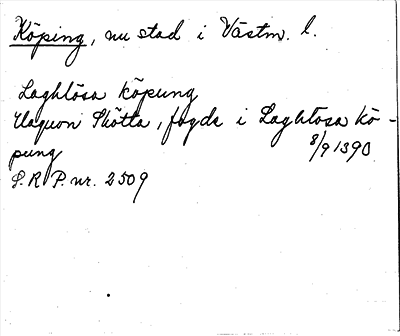 Köping, nu stad i Västm. l.
Laghlösa köpung
Haquon Skötta, fogde i Laghlösa kö-
pung 8/9 1390
S.R.P. nr. 2509